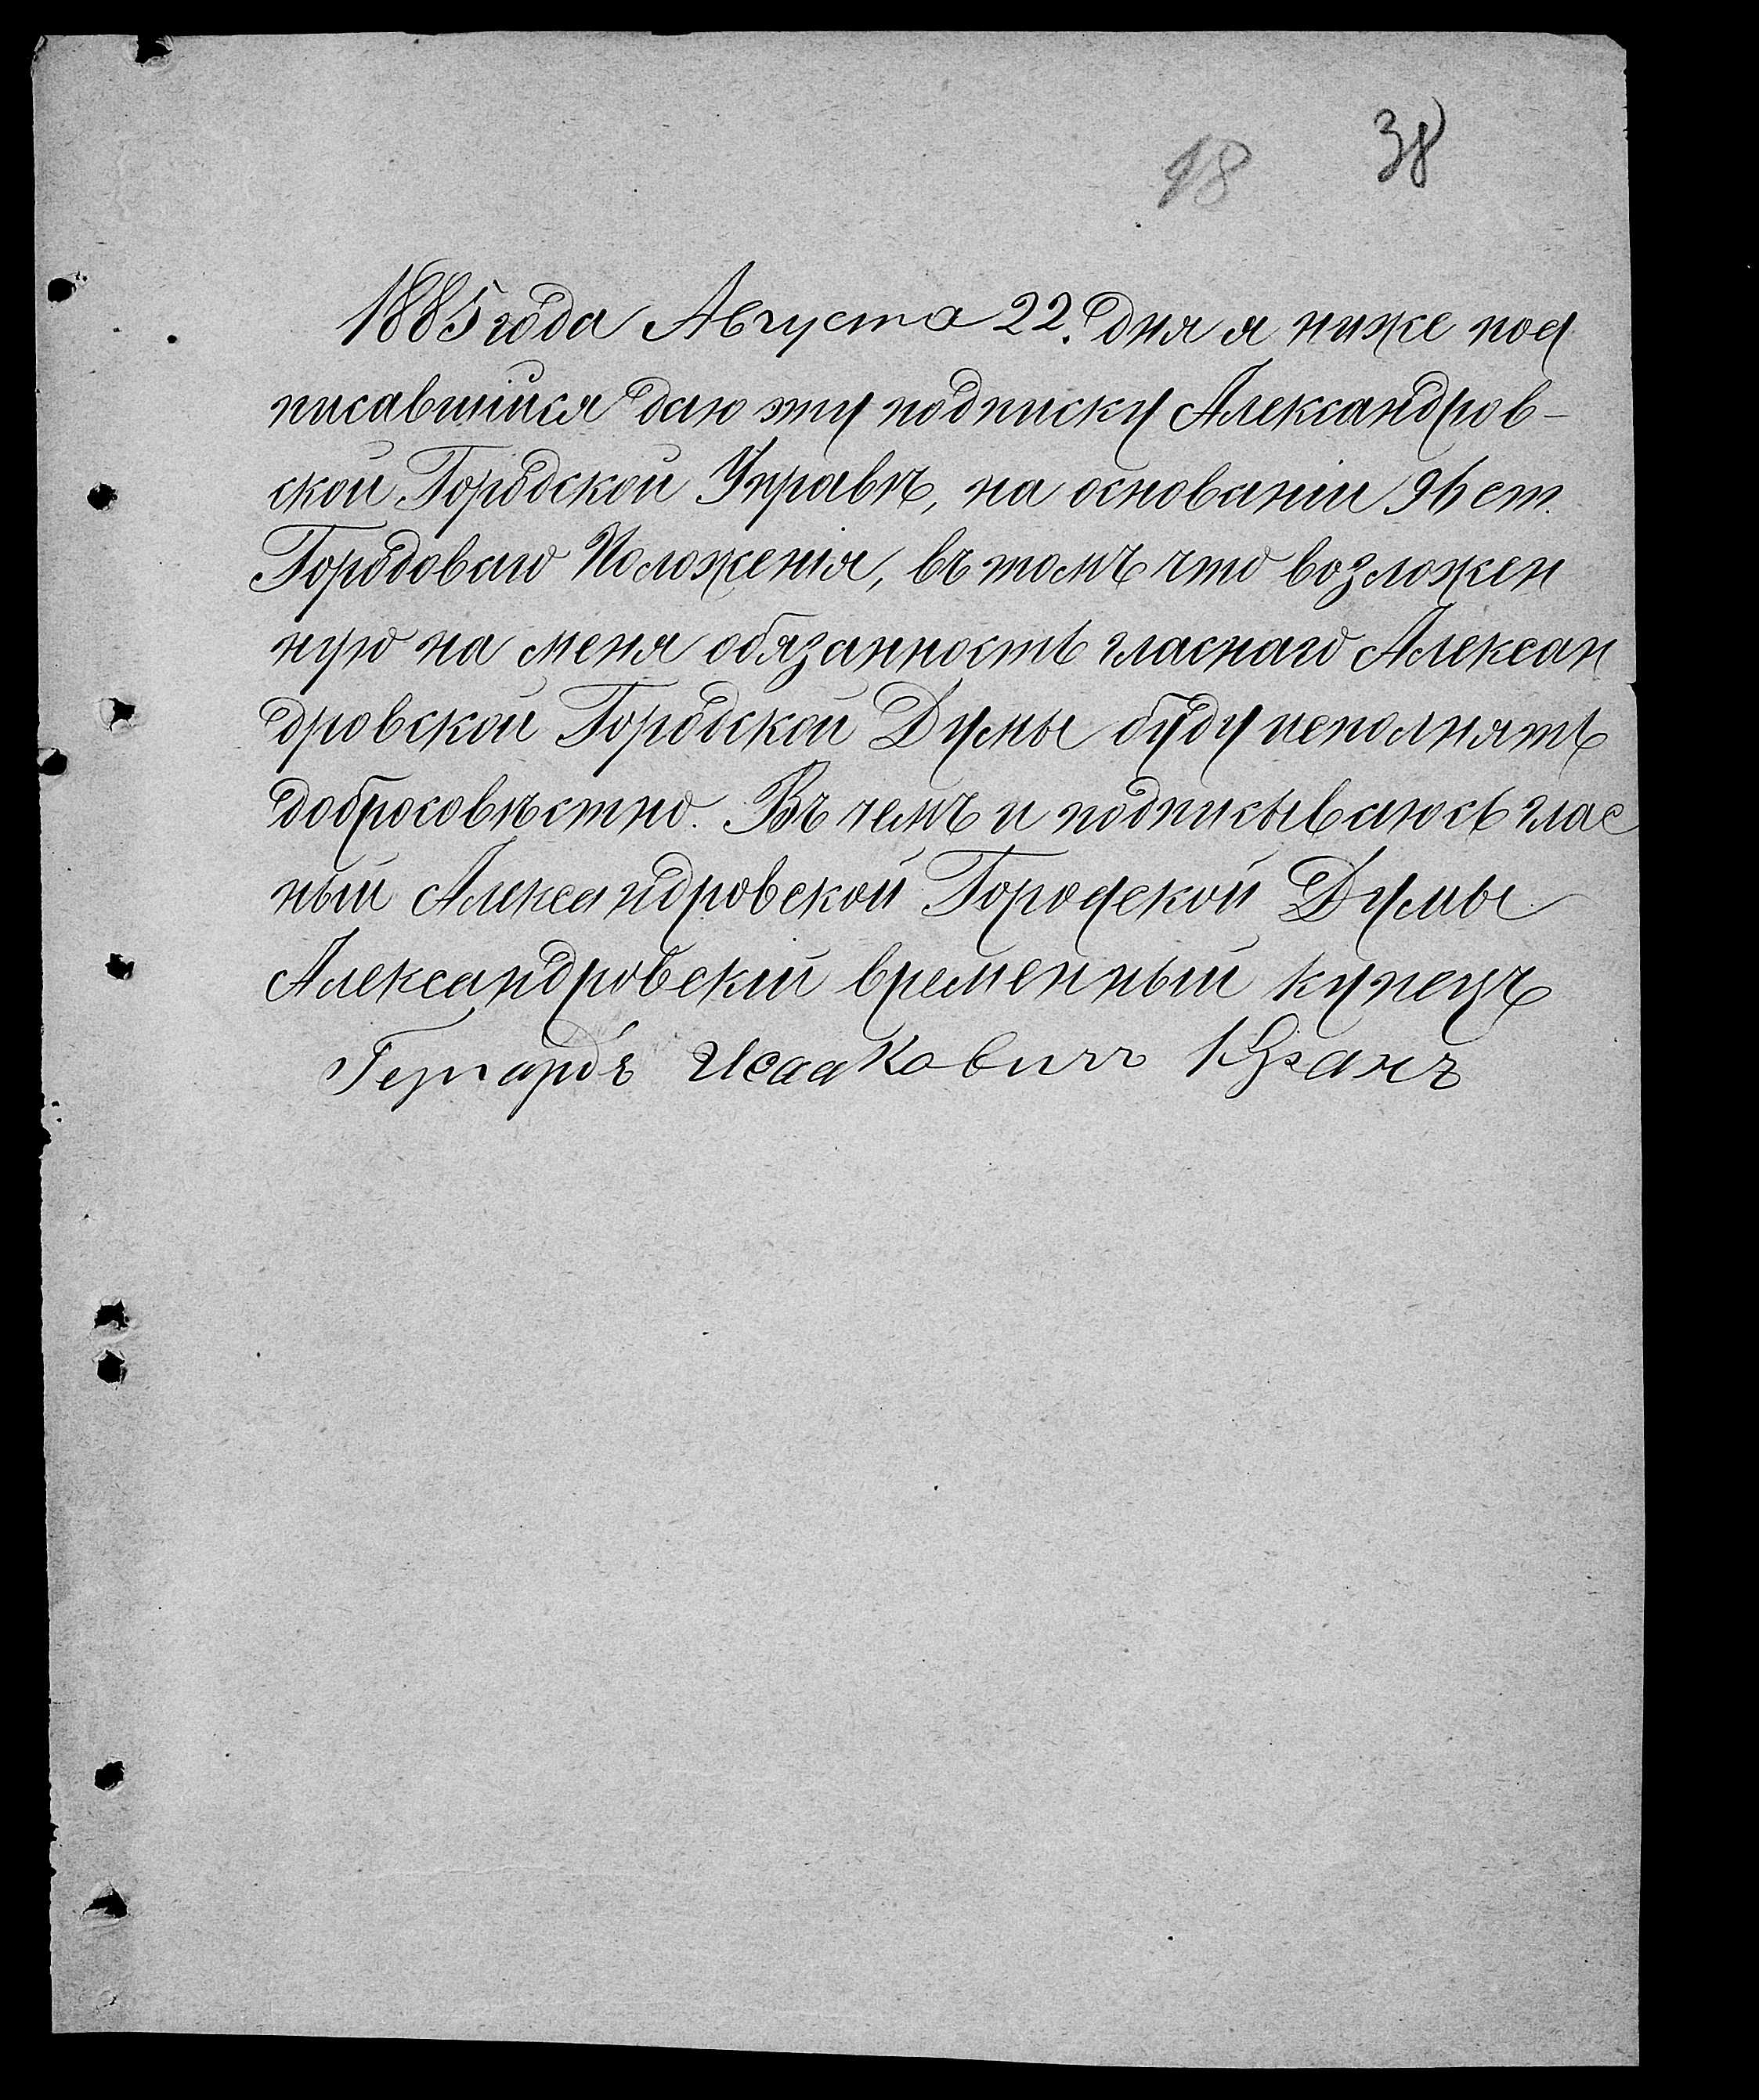 38
18
1885 года Августа 22. дня я ниже под
писавшийся даю эту подписку Александров-
ской Городской Управѣ, на основаніи 96 ст.
Городоваго Положенія, въ томъ что возложен
ную на меня обязанность гласнаго Алексан
дровской Городской Думы буду исполнять
добросовѣстно. Въ чемъ и подписываюсь глас
ный Александровской Городской Думы
Александровскій временный купецъ
Гергардъ Исааковичъ